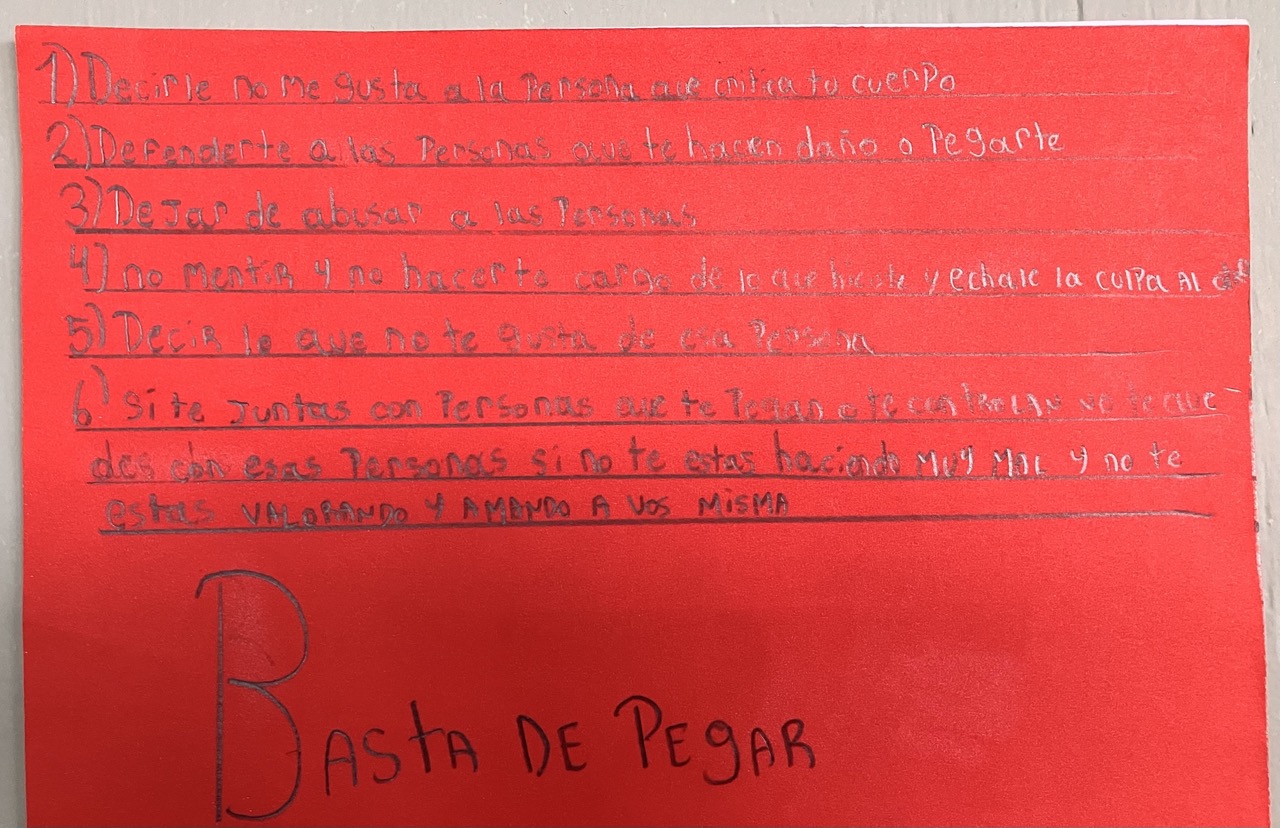 1) Decirle no me gusta a la Persona que critica tu cuerpo
2) Defenderte a las Personas que te hacen daño o Pegarte
3) Dejar de abusar a las Personas
4) no mentir y no hacerte cargo de lo que hiciste y echale la culpa Al
5) Decir lo que no te gusta de esa Persona
6) Si te Juntas con Personas que te Pegan o te conTROLAN no te que-
des con esas Personas si no te estas haciendo MUY MAL y no te
estas VALORANDO Y AMANDO A VOS MISMA
BASTA DE PEgAR